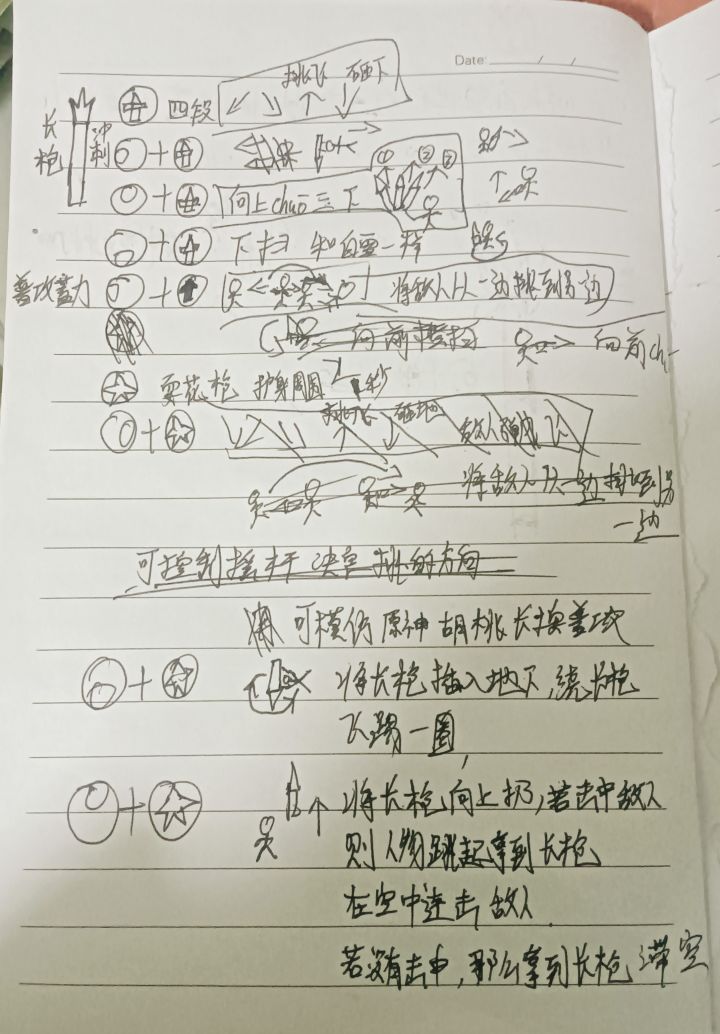 Date:
挑飞 砸下
长枪
四段
冲刺
① ② ③
向上chuō三下
下扫
普攻蓄力
将敌人从一边挑到另一边
向前横扫 向前ch
耍花枪 护身周围 1秒
挑飞 砸地
将敌人从一边挑到另
一边
可控制摇杆决定挑的方向
可模仿原神胡桃长换普攻
将长枪插入地下,绕长枪
飞踢一圈,
将长枪向上扔,若击中敌人
则人物跳起拿到长枪
在空中连击敌人
若没有击中,那么拿到长枪滞空